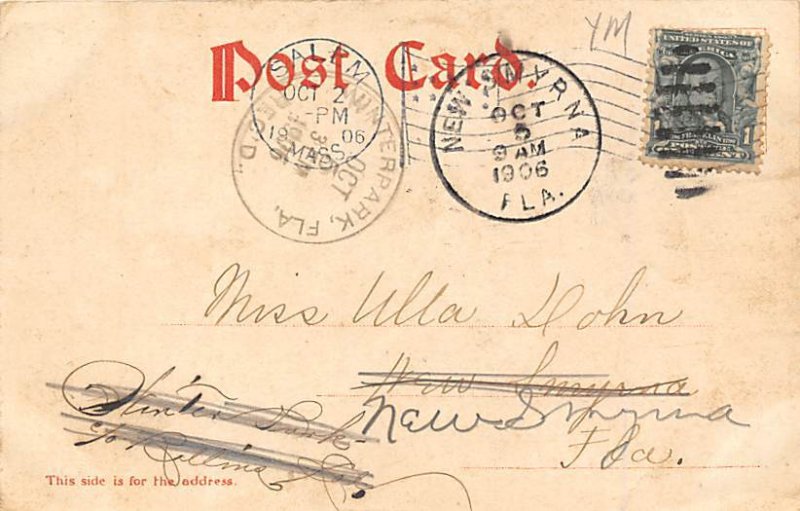 YM
Post Card.
SALEM
OCT 2
-PM
19 06
MASS.
WINTERPARK, FLA.
OCT
3
REC'D.
NEW SMYRNA
OCT
5
9 AM
1906
FLA.
UNITED STATES OF AMERICA
FRANKLIN
1
ONE CENT
Miss Ulla Dohn
New Smyrna
Winter Park
New Smyrna
c/o Rollins
Fla.
This side is for the address.